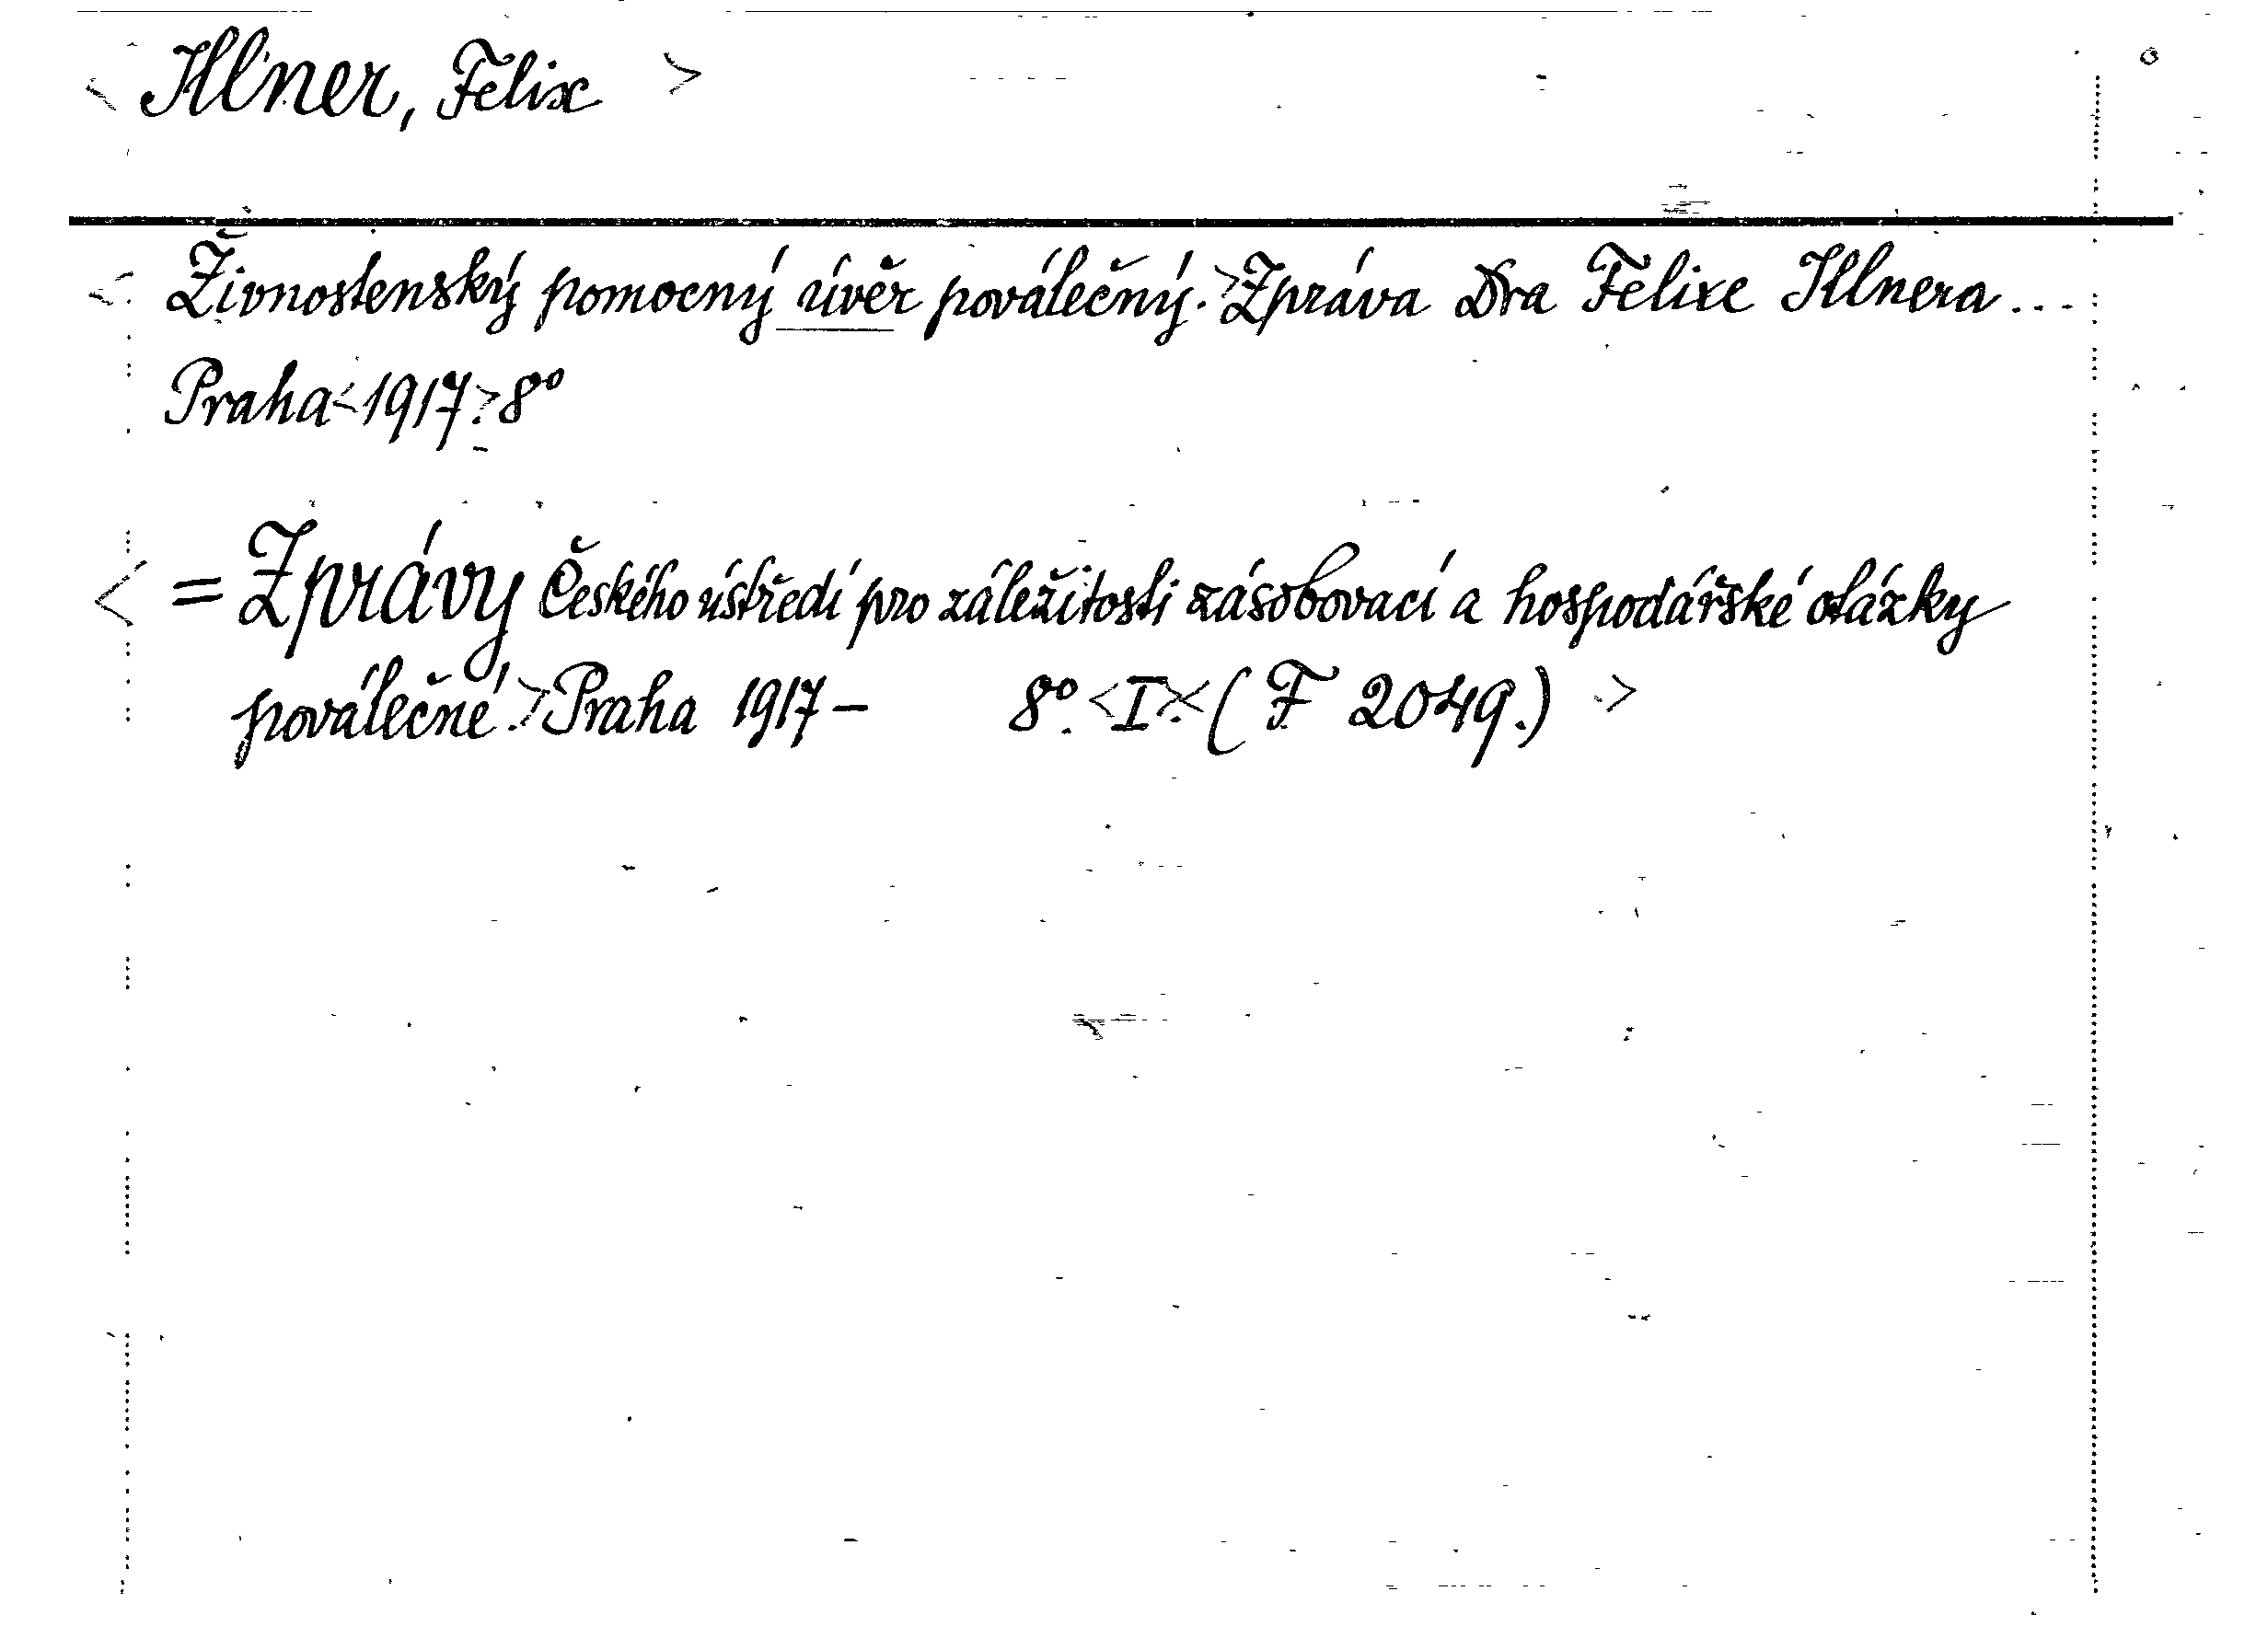 < Illner, Felix >
< Živnostenský pomocný úvěr poválečný. > Zpráva Dra Felixe Illnera ...
Praha < 1917 > 8°
< = Zprávy Českého ústředí pro záležitosti zásobovací a hospodářské otázky
poválečné. > Praha 1917 – 8°. < I > < ( F 2049. ) >